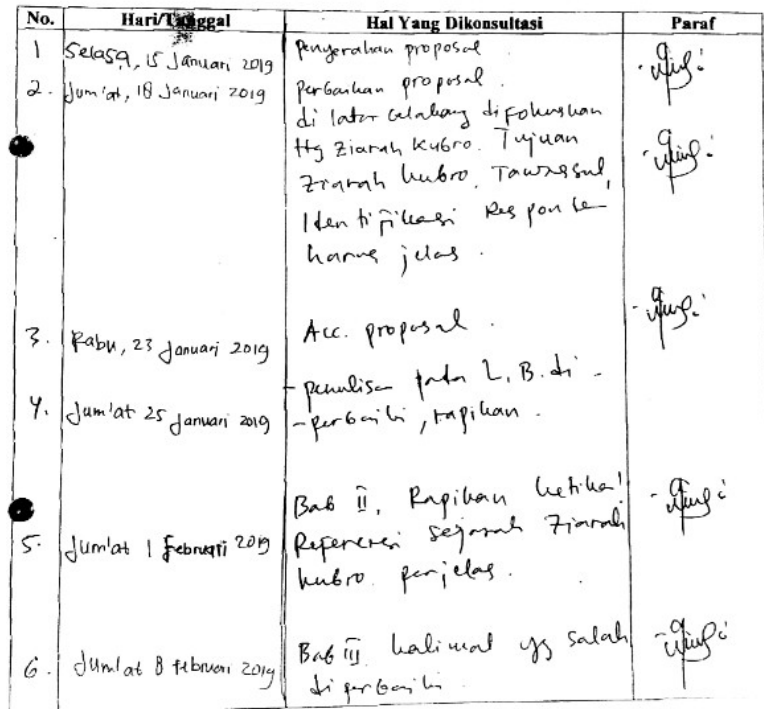 No. Hari/Tanggal Hal Yang Dikonsultasi Paraf
1 Selasa, 15 Januari 2019 Penyerahan proposal.
2. Jum'at, 18 Januari 2019 Perbaikan proposal.
di latar belakang difokuskan
ttg Ziarah Kubro. Tujuan
Ziarah kubro, Tawassul,
Identifikasi Responden
harus jelas.
3. Rabu, 23 Januari 2019 Acc. proposal.
4. Jum'at 25 Januari 2019 - penulisan pada L.B. di -
- perbaiki, rapikan.
5. Jum'at 1 Februari 2019 Bab II, Rapikan ketikan!
Referensi sejarah Ziarah
kubro perjelas.
6. Jum'at 8 februari 2019 Bab III kalimat yg salah
di perbaiki.